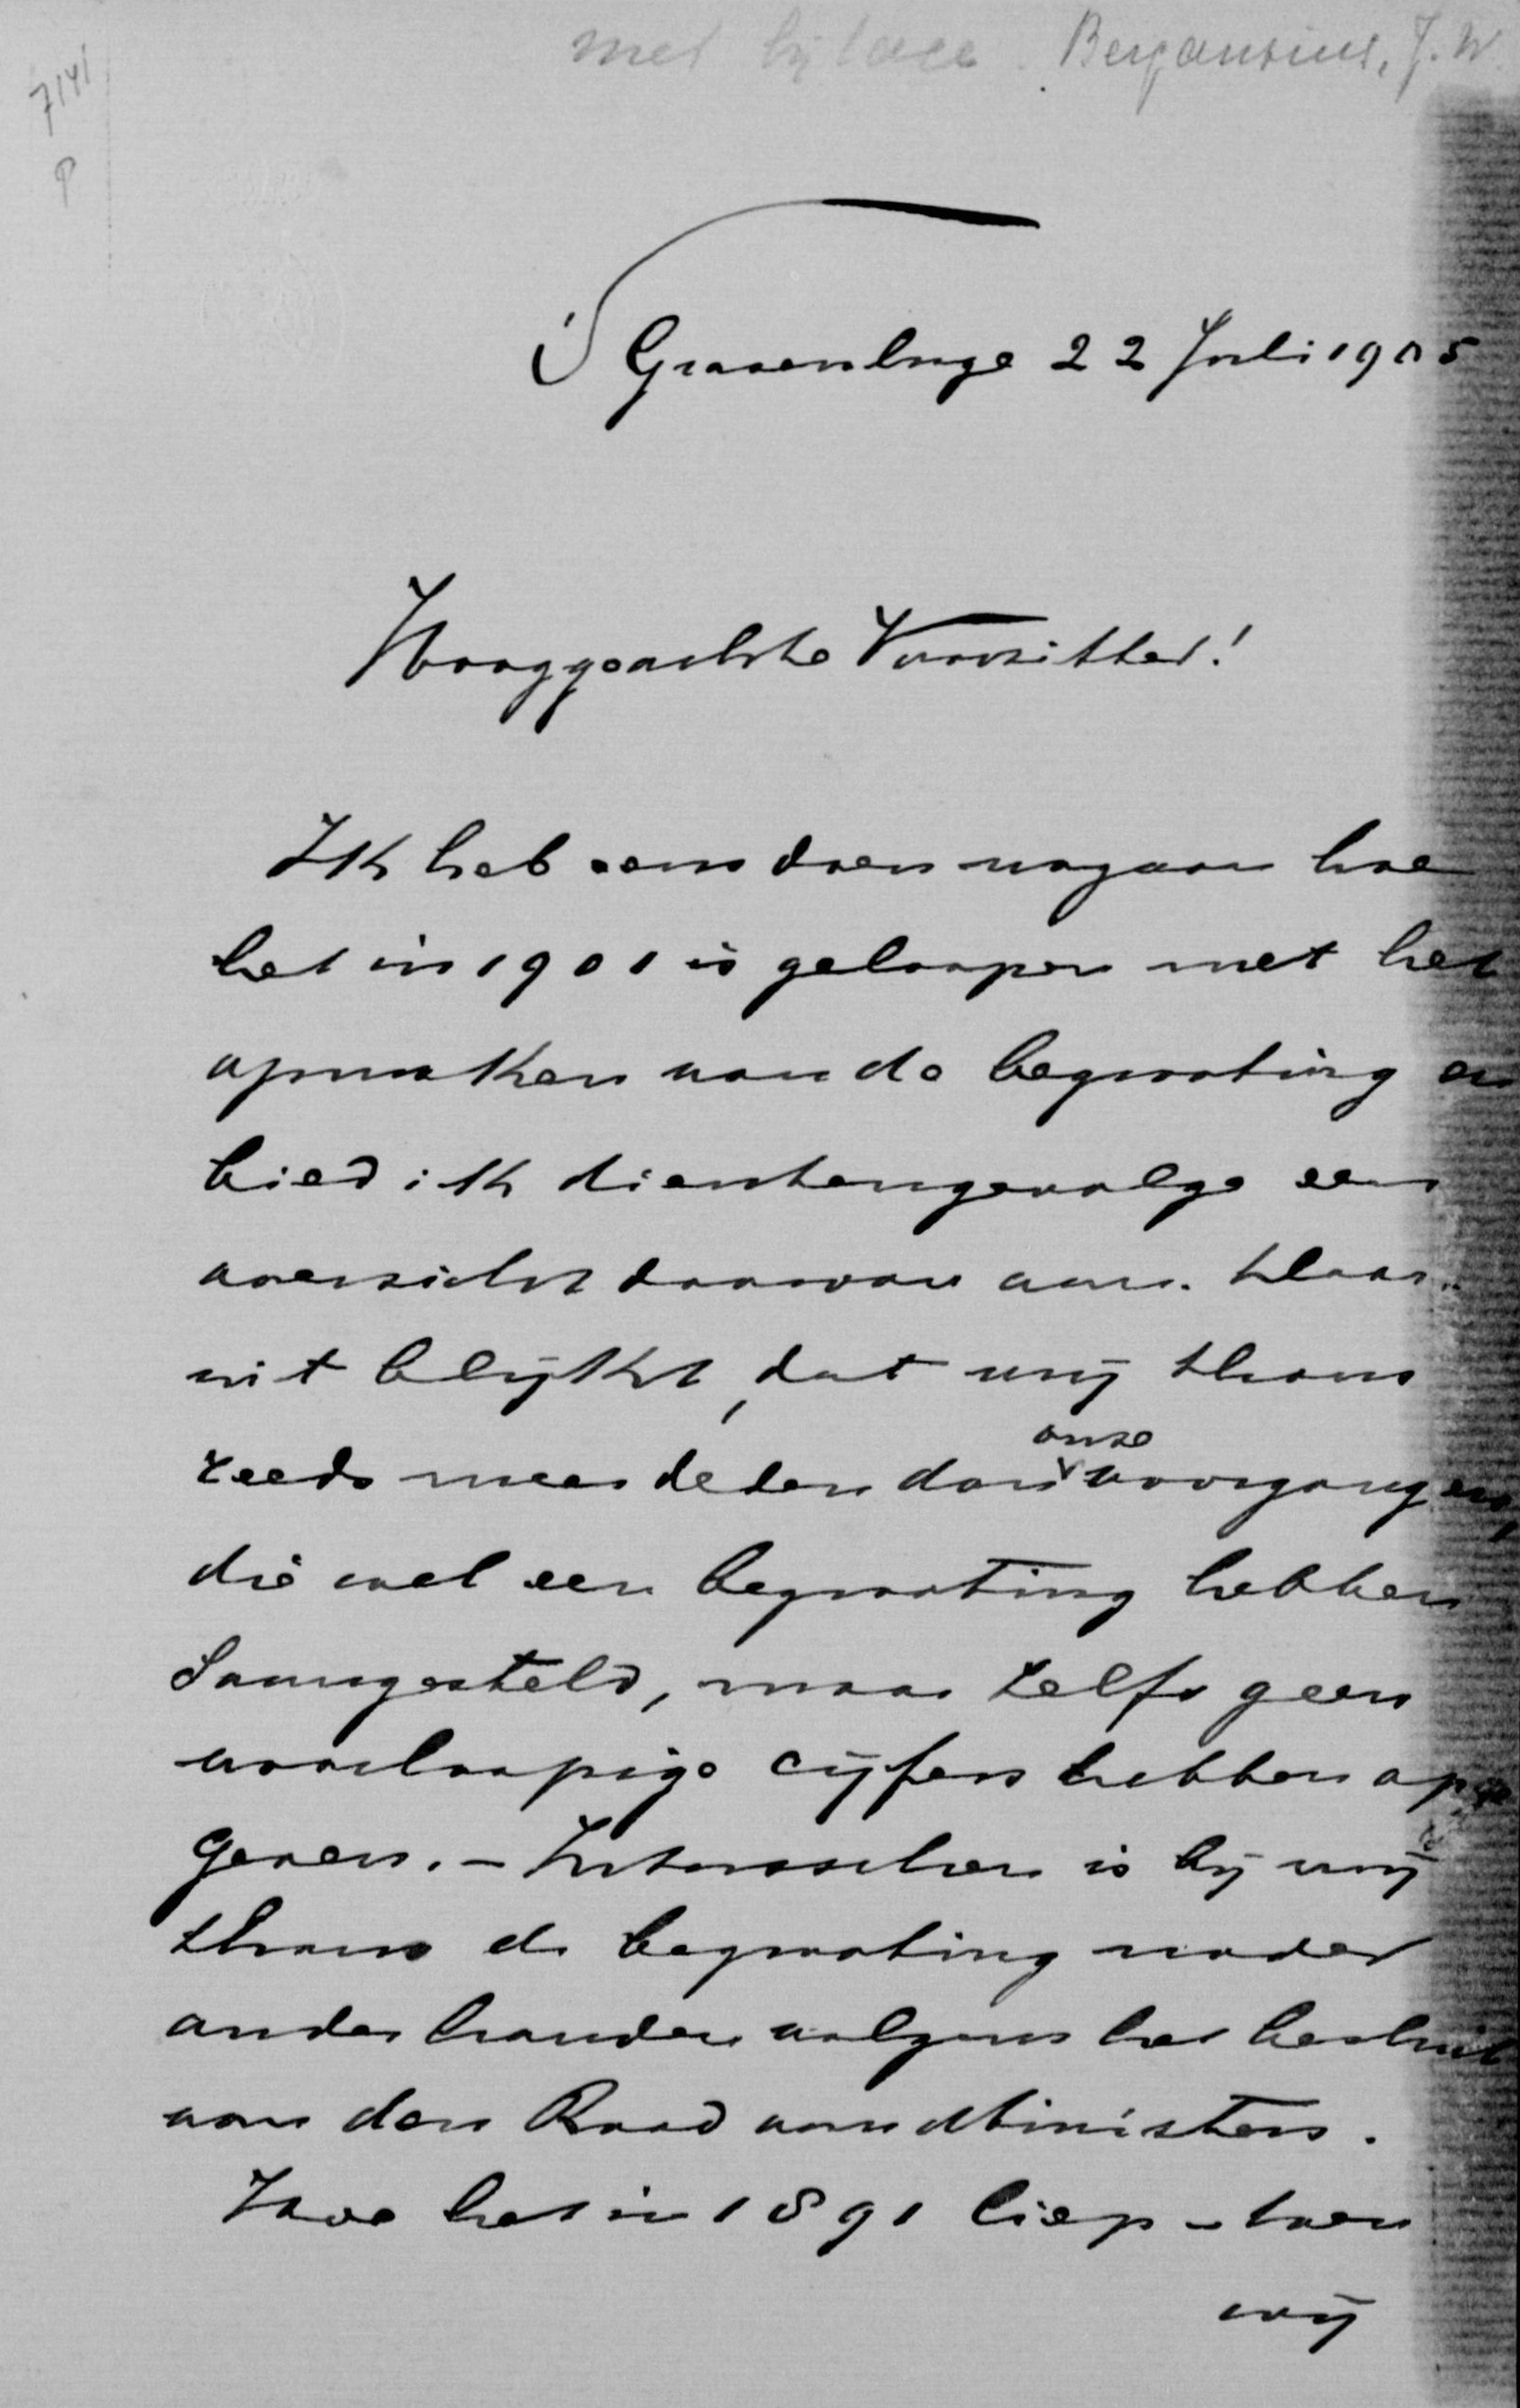 met bijlage. Bergansius, J.W.
7141
P
's Gravenhage 22 Juli 1905
Hooggeachte Voorzitter!
Ik heb eens doen nagaan hoe
het in 1901 is geloopen met het
opmaken van de begrooting en
bied ik dientengevolge een
overzicht daarvan aan. Daar-
uit blijkt, dat wij thans
reeds meer deden dan onze voorgangers,
die wel een begrooting hebben
saamgesteld, maar zelfs geen
voorloopige cijfers hebben opge
geven. – Intusschen is bij mij
thans de begrooting nader
onder handen volgens het besluit
van den Raad van Ministers.
Hoe het in 1891 liep – toen
wij